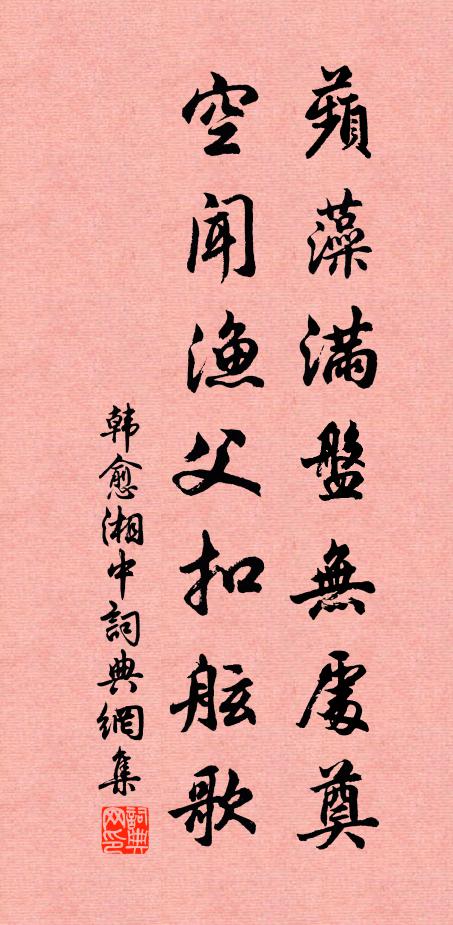 蘋藻滿盤無處奠
空聞漁父扣舷歌
韩愈湘中詞典網集
詞典网印